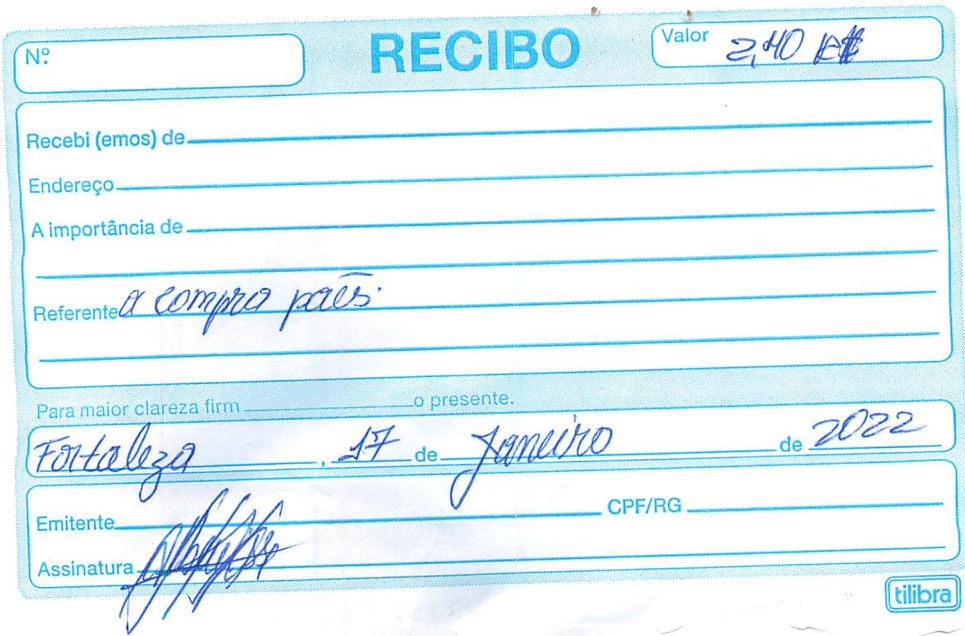 Nº RECIBO Valor 2,40 R$
Recebi (emos) de
Endereço
A importância de
Referente a compra pães.
Para maior clareza firm o presente.
Fortaleza, 17 de Janeiro de 2022
Emitente CPF/RG
Assinatura
tilibra